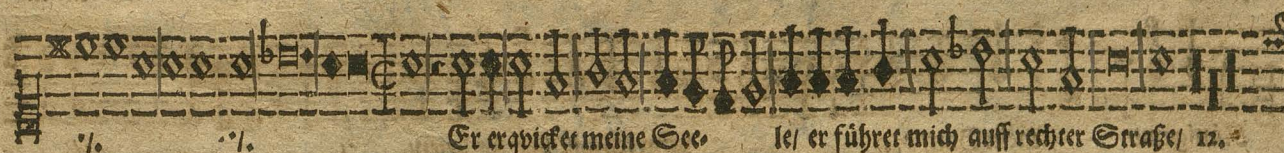 ·/. ·/. Er erqvicket meine See- le/ er führet mich auff rechter Straße/ 12.